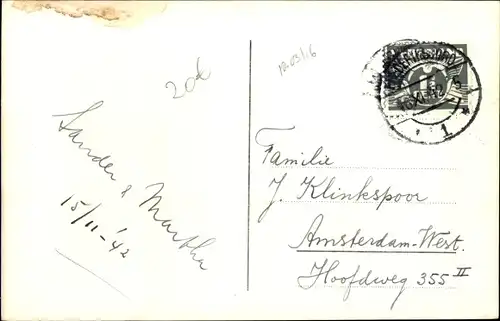 20d
Sander & Martha
15/11-'42
Familie
J. Klinkspoor
Amsterdam-West.
Hoofdweg 355 II
1